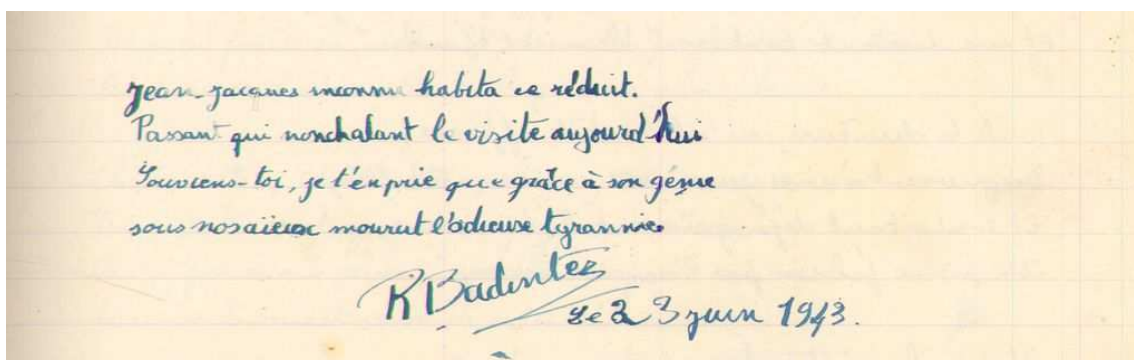 Jean-Jacques inconnu habita ce réduit.
Passant qui nonchalant le visite aujourd'hui
Souviens-toi, je t'en prie que grâce à son génie
sous nos aïeux mourut l'odieuse tyrannie
R Badinter
Le 23 juin 1943.